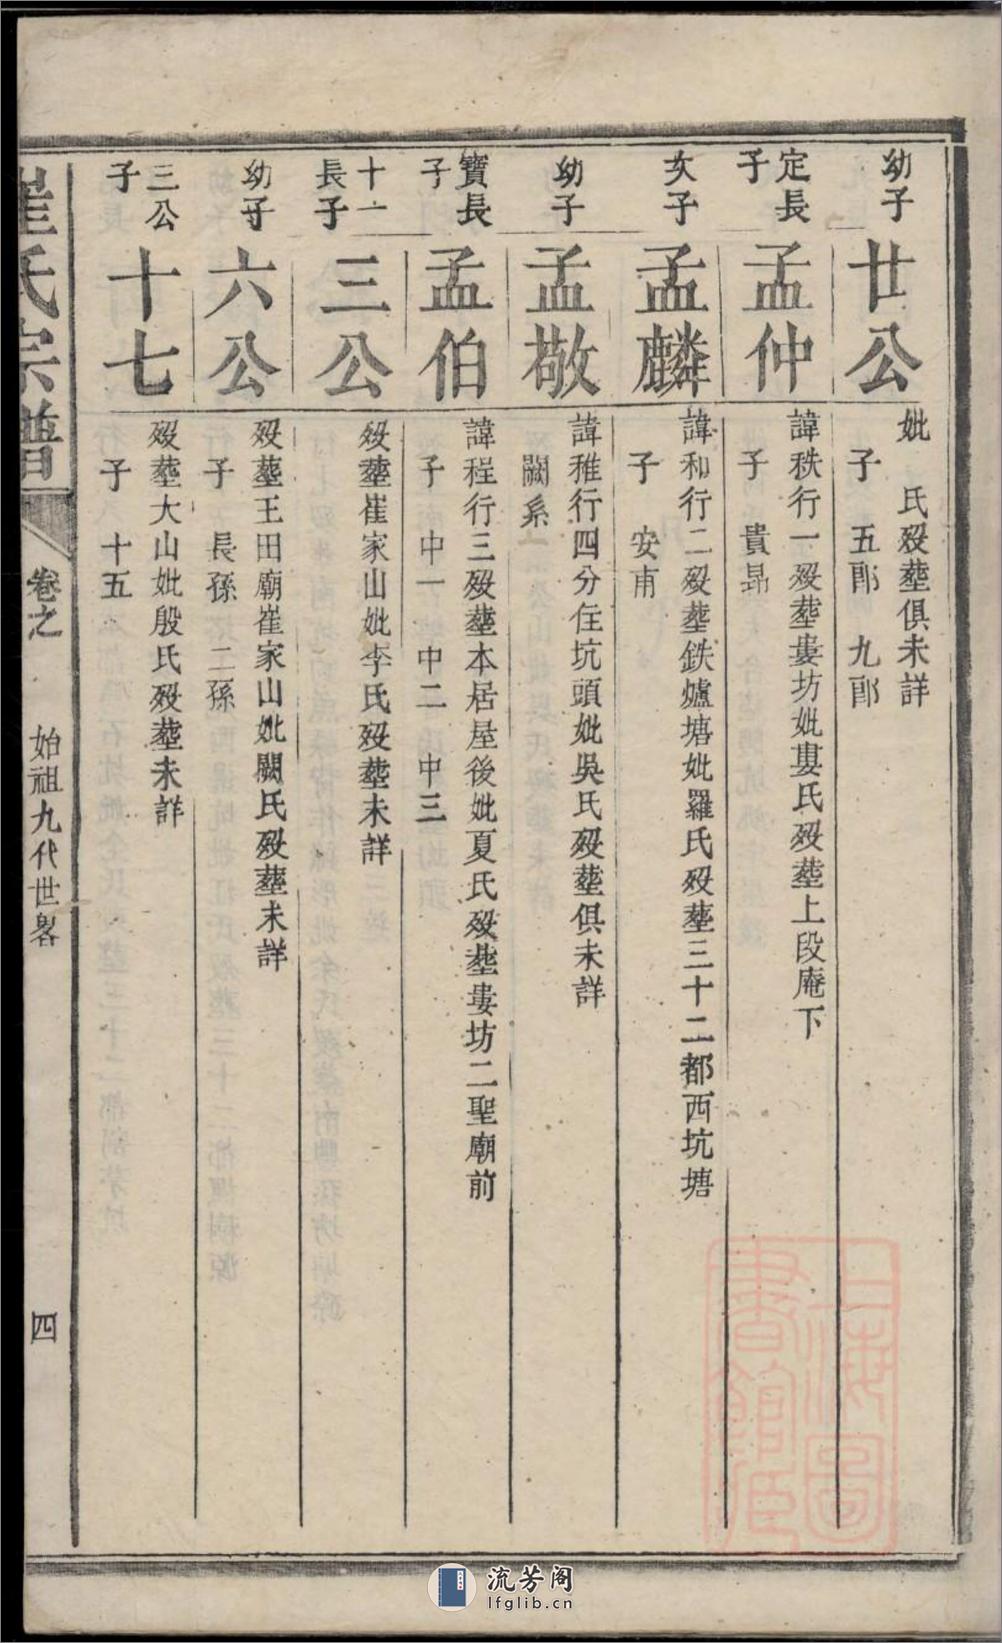 幼子
廿公
妣　氏殁塟俱未詳
子　五郎　九郎
定長
子
孟仲
諱秩行一殁塟婁坊妣婁氏殁塟上段庵下
子　貴昻
次子
孟麟
諱和行二殁塟鉄爐塘妣羅氏殁塟三十二都西坑塘
子　安甫
幼子
孟敬
諱稚行四分住坑頭妣吳氏殁塟俱未詳
闕系
寶長
子
孟伯
諱程行三殁塟本居屋後妣夏氏殁塟婁坊二聖廟前
子　中一　中二　中三
十一
長子
三公
殁塟崔家山妣李氏殁塟未詳
幼子
六公
殁塟王田廟崔家山妣闕氏殁塟未詳
子　長孫　二孫
三公
子
十七
殁塟大山妣殷氏殁塟未詳
子　十五
崔氏宗譜
卷之
始祖九代世畧
四
上海圖
書館藏
流芳阁
lfglib.cn